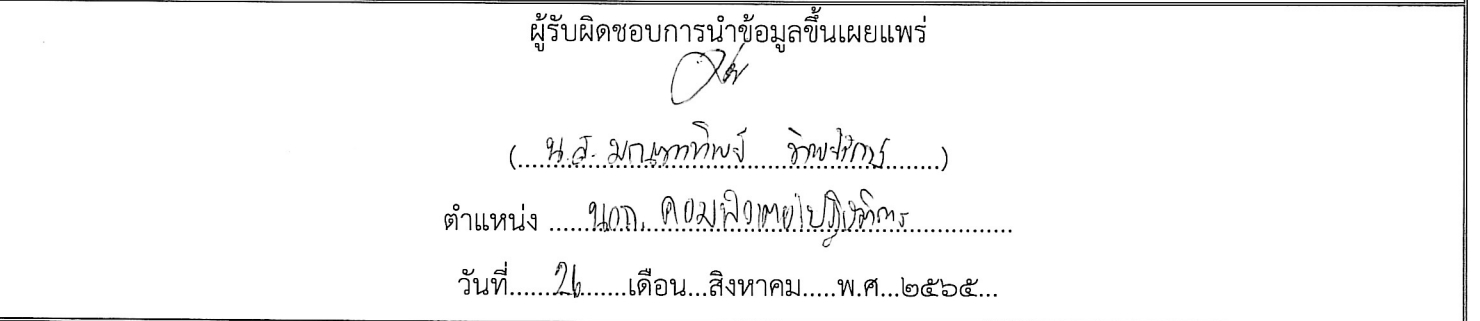 ผู้รับผิดชอบการนำข้อมูลขึ้นเผยแพร่
(....น.ส. มณฑาทิพย์.......)
ตำแหน่ง ......นวก. คอมพิวเตอร์ปฏิบัติการ................
วันที่.......26.......เดือน...สิงหาคม.....พ.ศ...๒๕๖๕...